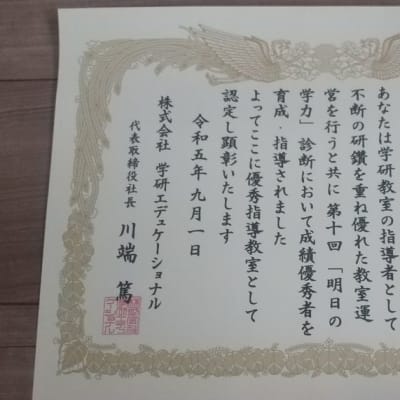 あなたは学研教室の指導者として
不断の研鑽を重ね優れた教室運
営を行うと共に第十回「明日の
学力」診断において成績優秀者を
育成・指導されました
よってここに優秀指導教室として
認定し顕彰いたします
令和五年九月一日
株式会社 学研エデュケーショナル
代表取締役社長 川端 篤